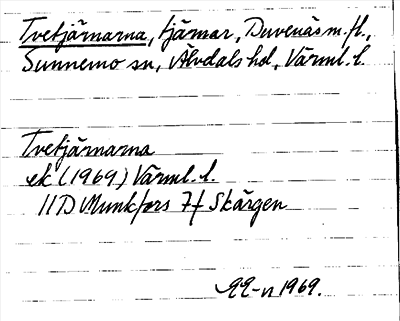 Tvetjärnarna, tjärnar, Duvenäs m.fl.,
Sunnemo sn, Älvdals hd, Värml. l.
Tvetjärnarna
ek (1969) Värml. l.
11D Munkfors 7f Skärgen
1969.